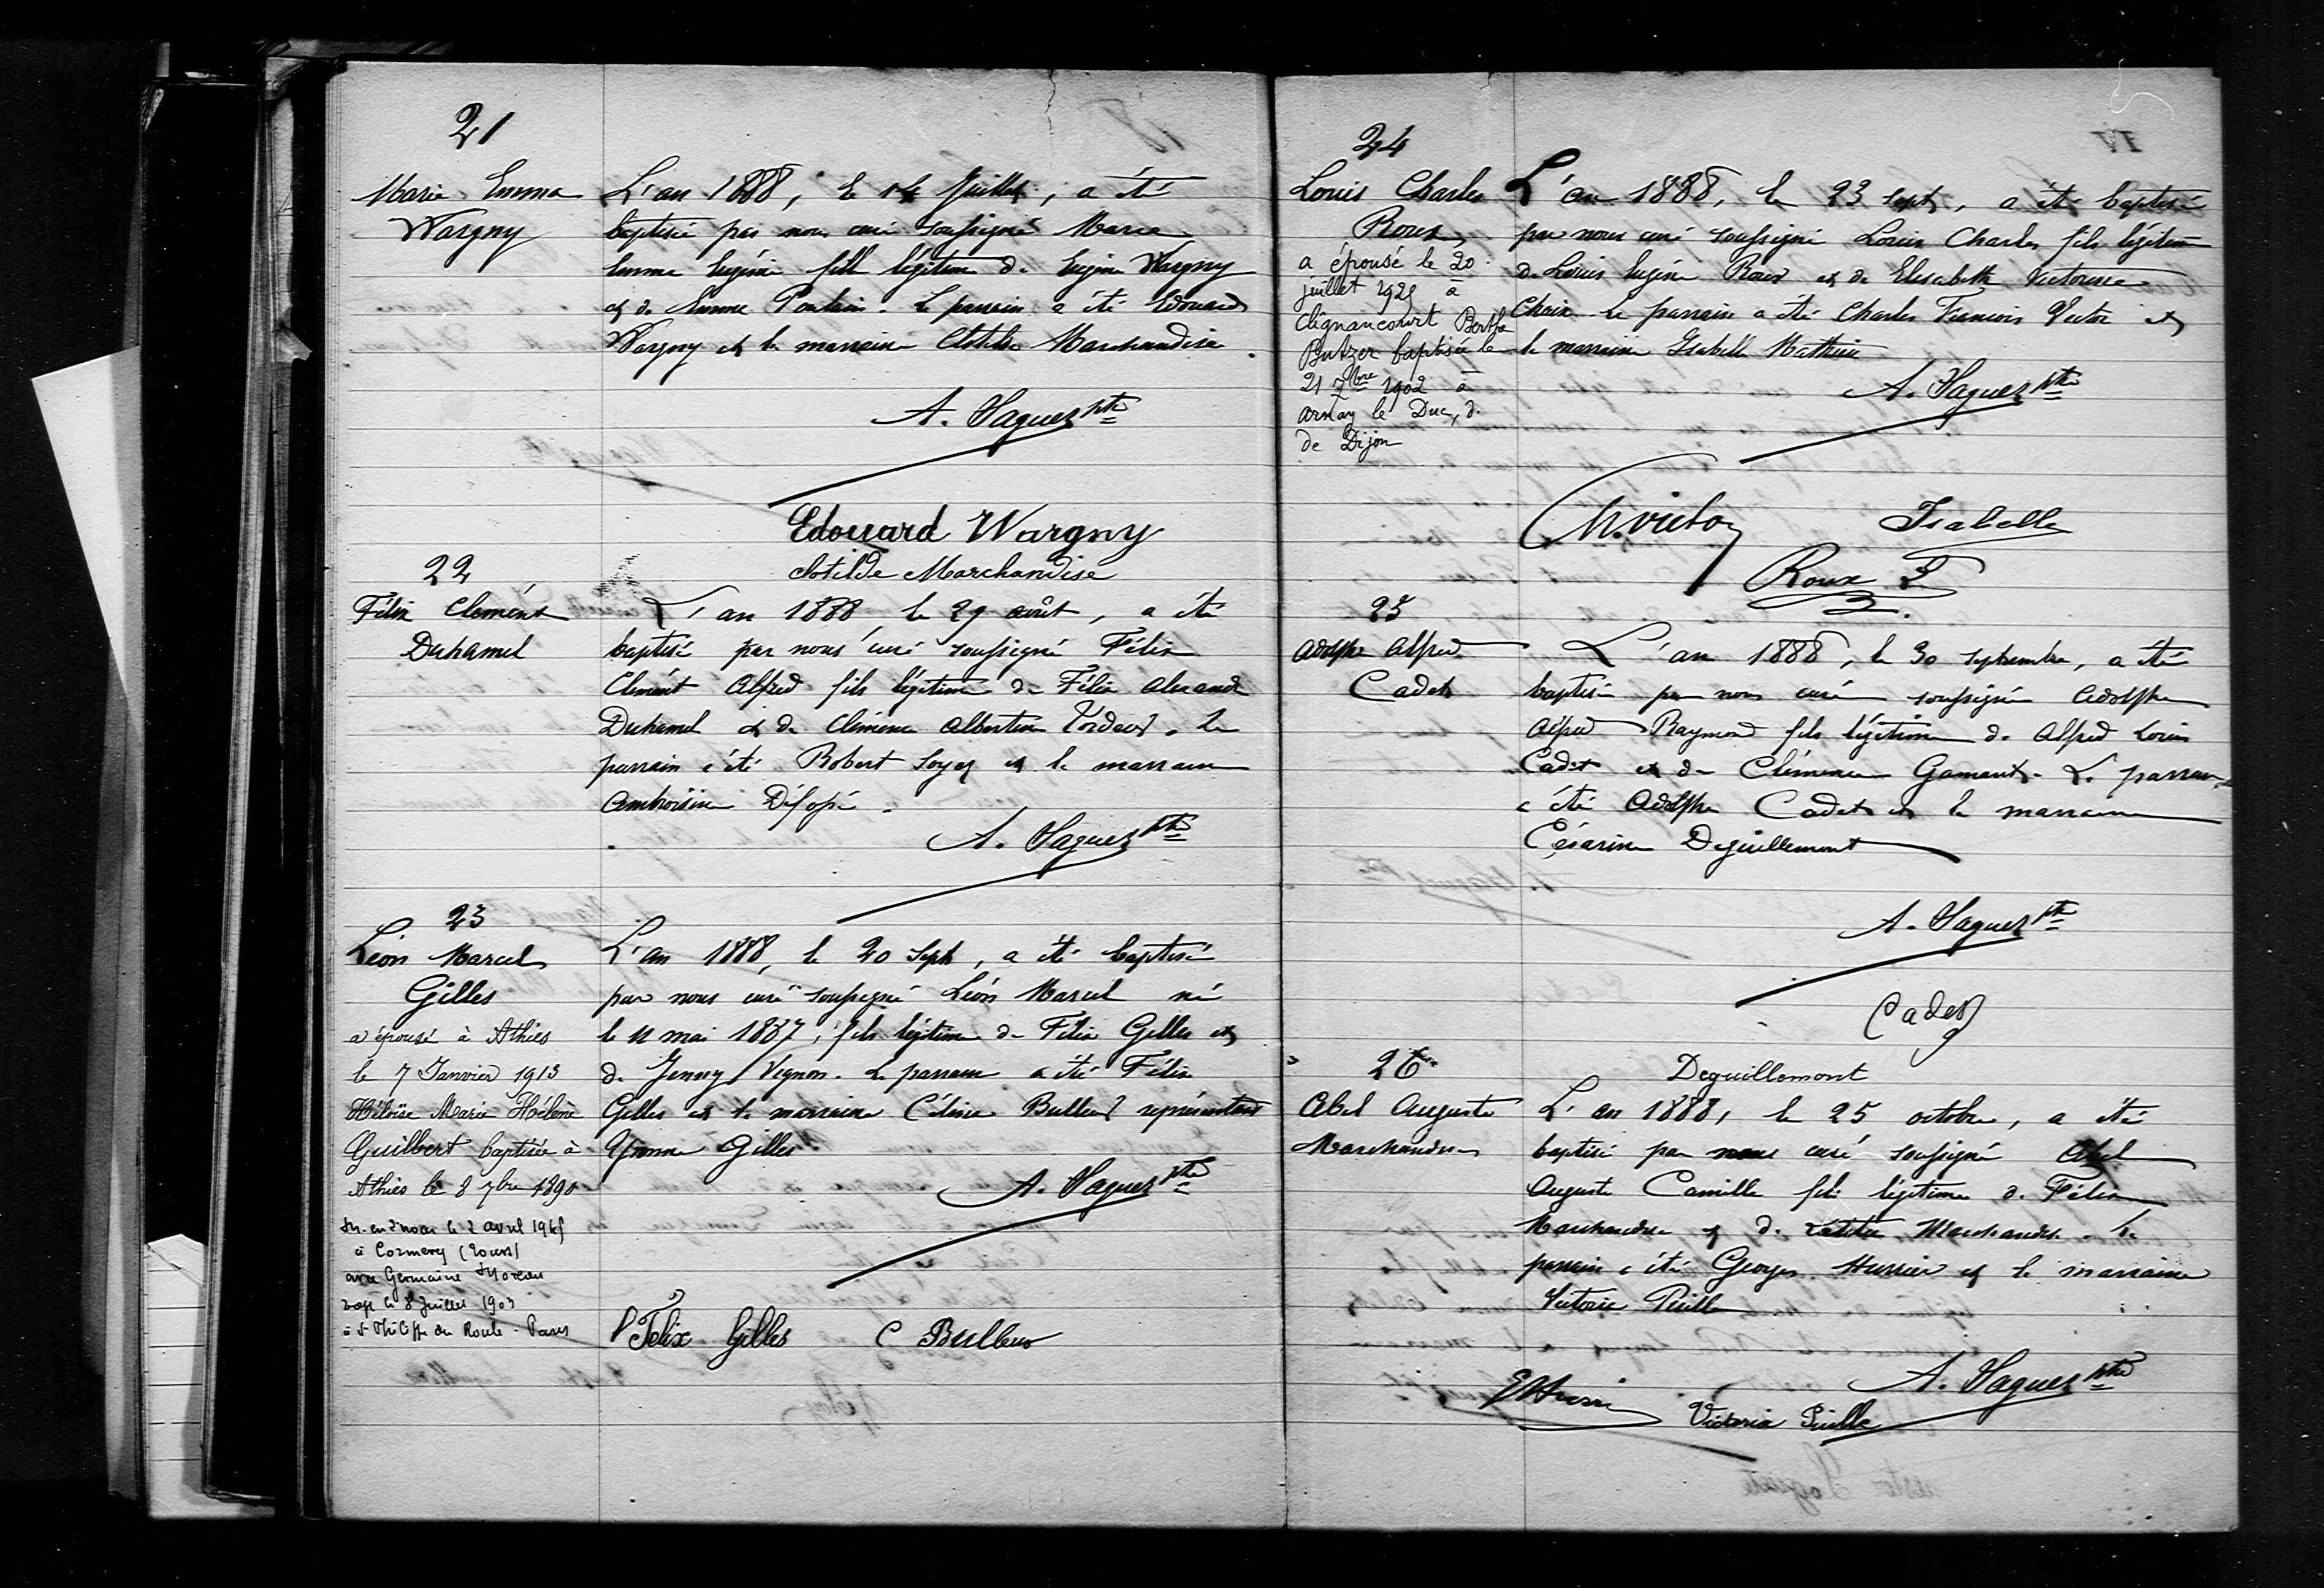 21
Marie Emma
Wargny
L'an 1888, le 14 Juillet, a été
baptisée par nous curé soussigné Marie
Emma Eugénie fille légitime de Eugène Wargny
et de Emma Poulain. Le parrain a été Edouard
Wargny et la marraine Clotilde Marchandise
A. Vaguez ptre
Edouard Wargny
Clotilde Marchandise
22
Félix Clemént
Duhamel
L'an 1888, le 29 août, a été
baptisé par nous curé soussigné Félix
Clemént Alfred fils légitime de Félix Alexandre
Duhamel et de Clémence Albertine. Le
parrain a été Robert Soyez et la marraine
Ambroisine
A. Vaguez ptre
23
Léon Marcel
Gilles
a épousé à Athies
le 7 Janvier 1913
Héloïse Marie Hélène
Guilbert baptisée à
Athies le 8 7bre 1890
M. en 2 noces le 2 avril 1965
à Cormery (Tours)
avec Germaine Moreau
bap le 8 Juillet 1903
à St Philippe du Roule - Paris
L'an 1888, le 20 Sept, a été baptisé
par nous curé soussigné Léon Marcel né
le 11 mai 1887, fils légitime de Félix Gilles et
de Jenny Vignon. Le parrain a été Félix
Gilles et la marraine Céline Bulleux représentant
Yvonne Gilles
A. Vaguez ptre
Félix Gilles C Bulleux
24
Louis Charles
Roux
a épousé le 20
juillet 1925 à
Clignancourt Berthe
Butzer baptisée le
21 7bre 1902 à
Arnay le Duc, d.
de Dijon
L'an 1888, le 23 sept, a été baptisé
par nous curé soussigné Louis Charles fils légitime
de Louis Eugène Roux et de Elisabeth Victorine
Choix. Le parrain a été Charles François Victor et
la marraine Isabelle Mathieu
A. Vaguez ptre
Ch. Victor Isabelle
Roux
25
Adolphe Alfred
Cadet
L'an 1888, le 30 septembre, a été
baptisé par nous curé soussigné Adolphe
Alfred Raymond fils légitime de Alfred Louis
Cadet et de Clémence Gamant. Le parrain
a été Adolphe Cadet et la marraine
Césarine Deguillemont
A. Vaguez ptre
Cadet
Deguillemont
26
Abel Auguste
Marchandise
L'an 1888, le 25 octobre, a été
baptisé par nous curé soussigné Abel
Auguste Camille fils légitime de Félix
Marchandise et de Marchandise. Le
parrain a été Georges Hurier et la marraine
Victorie Puille
A. Vaguez ptre
Victoria Puille